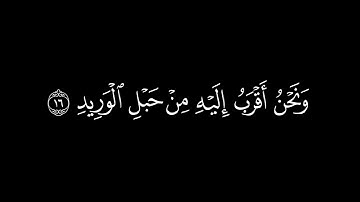 وَنَحْنُ أَقْرَبُ إِلَيْهِ مِنْ حَبْلِ ٱلْوَرِيدِ ١٦